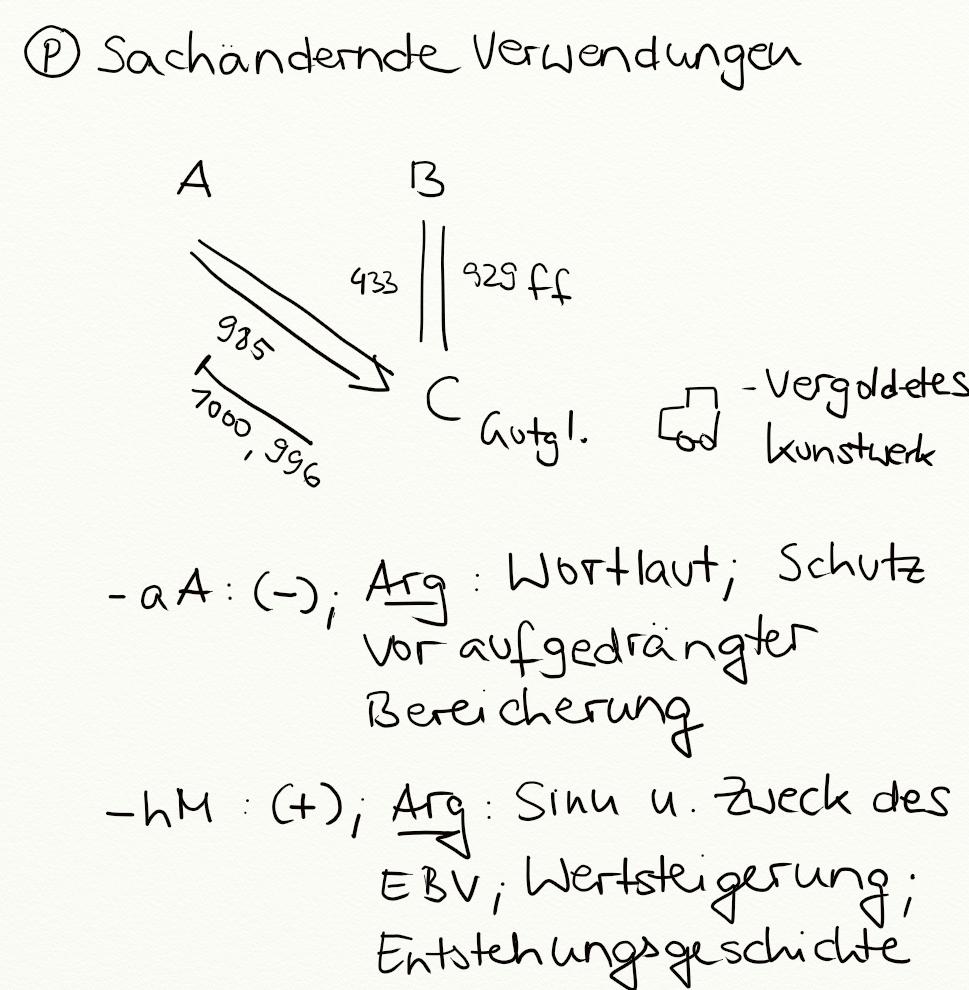 Ⓟ Sachändernde Verwendungen
A B
433 929 ff
985
1000, 996
C Gutgl.
- Vergoldetes
Kunstwerk
- aA: (-); Arg: Wortlaut; Schutz
vor aufgedrängter
Bereicherung
- hM: (+); Arg: Sinn u. Zweck des
EBV; Wertsteigerung;
Entstehungsgeschichte